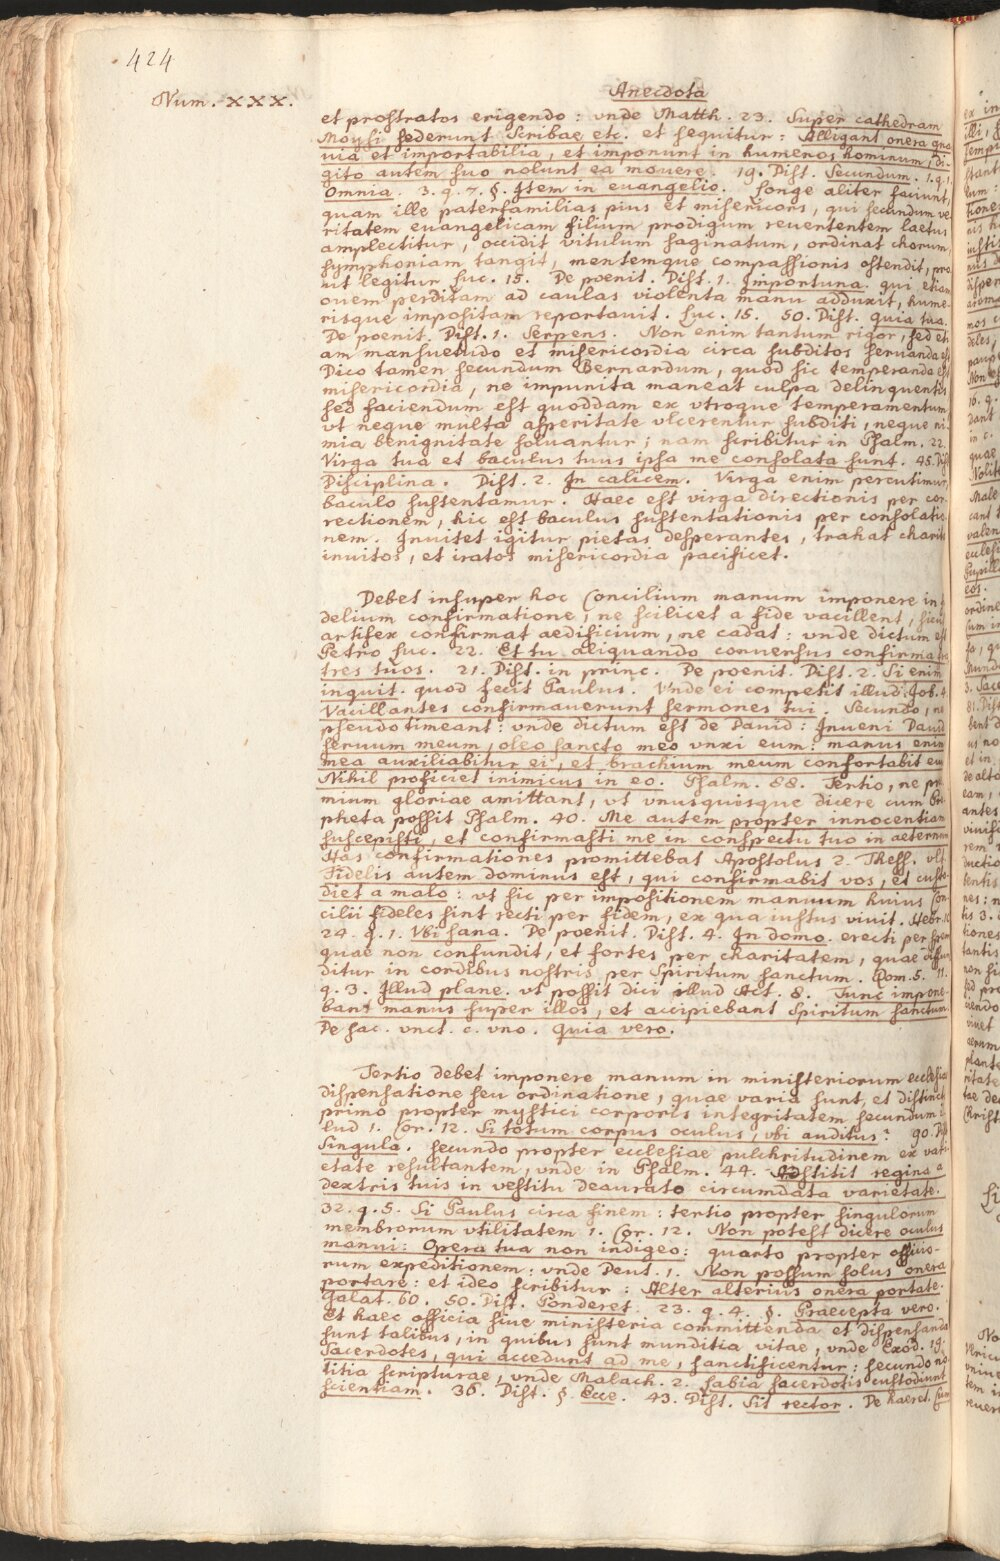 424
Num. XXX.
Anecdota
et prostratos erigendo: vnde Matth. 23. Super cathedram
Moysi sederunt Scribae etc. et sequitur: Alligant onera gra
uia et importabilia, et imponunt in humeros hominum, di
gito autem suo nolunt ea mouere. 19. Dist. Secundum. 1. q. 1.
Omnia. 3. q. 7. §. Item in euangelio. Longe aliter faciunt,
quam ille paterfamilias pius et misericors, qui secundum ve
ritatem euangelicam filium prodigum reuertentem laetus
amplectitur, occidit vitulum saginatum, ordinat chorum,
symphoniam tangit, mentemque compassionis ostendit, pro
ut legitur Luc. 15. De poenit. Dist. 1. Importuna. qui etiam
ouem perditam ad caulas violenta manu adduxit, hume
risque impositam reportauit. Luc. 15. 50. Dist. quia tua.
De poenit. Dist. 1. Serpens. Non enim tantum rigor, sed eti
am mansuetudo et misericordia circa subditos seruanda est
Dico tamen secundum Bernardum, quod sic temperanda est
misericordia, ne impunita maneat culpa delinquentis
sed faciendum est quoddam ex vtroque temperamentum,
vt neque multa asperitate vlcerentur subditi, neque ni
mia benignitate soluantur; nam scribitur in Psalm. 22.
Virga tua et baculus tuus ipsa me consolata sunt. 45. Dist
Disciplina. Dist. 2. In calicem. Virga enim percutimur,
baculo sustentamur. Haec est virga directionis per cor
rectionem, hic est baculus sustentationis per consolatio
nem. Inuitet igitur pietas desperantes, trahat charitas
inuitos, et iratos misericordia pacificet.
Debet insuper hoc Concilium manum imponere in
delium confirmatione, ne scilicet a fide vacillent, sicut
artifex confirmat aedificium, ne cadat: vnde dictum est
Petro Luc. 22. Et tu aliquando conuersus confirma fra
tres tuos. 21. Dist. in princ. De poenit. Dist. 2. Si enim
inquit. quod fecit Paulus. Vnde ei competit illud Job. 4.
Vacillantes confirmauerunt sermones tui. Secundo, ne
pseudo timeant: vnde dictum est de Dauid: Inueni Dauid
seruum meum, oleo sancto meo vnxi eum: manus enim
mea auxiliabitur ei, et brachium meum confortabit eum
Nihil proficiet inimicus in eo. Psalm. 88. Tertio, ne prae
mium gloriae amittant, vt vnusquisque dicere cum Pro
pheta possit Psalm. 40. Me autem propter innocentiam
suscepisti, et confirmasti me in conspectu tuo in aeternum
Has confirmationes promittebat Apostolus 2. Thess. vlt.
Fidelis autem dominus est, qui confirmabit vos, et custo
diet a malo: vt sic per impositionem manuum huius Con
cilii fideles sint recti per fidem, ex qua iustus viuit. Hebr. 10
24. q. 1. Vbi sana. De poenit. Dist. 4. In domo. erecti per spem
quae non confundit, et fortes per charitatem, quae diffun
ditur in cordibus nostris per Spiritum sanctum. Rom. 5. 11.
q. 3. Illud plane. vt possit dici illud Act. 8. Tunc impone-
bant manus super illos, et accipiebant Spiritum sanctum.
De sac. vnct. c. vno. Quia vero.
Tertio debet imponere manum in ministeriorum ecclesiae
dispensatione seu ordinatione, quae varia sunt, et distincta
primo propter mystici corporis integritatem secundum il
lud 1. Cor. 12. Si totum corpus oculus, vbi auditus? 90. Dist
Singula. secundo propter ecclesiae pulchritudinem ex vari
etate resultantem, vnde in Psalm. 44. Adstitit regina a
dextris tuis in vestitu deaurato circumdata varietate.
32. q. 5. Si Paulus circa finem: tertio propter singulorum
membrorum vtilitatem 1. Cor. 12. Non potest dicere oculus
manui: Opera tua non indigeo: quarto propter officio-
rum expeditionem: vnde Deut. 1. Non possum solus onera
portare: et ideo scribitur: Alter alterius onera portate.
Galat. 60. 50. Dist. Ponderet. 23. q. 4. §. Praecepta vero.
Et haec officia siue ministeria committenda et dispensanda
sunt talibus, in quibus sunt munditia vitae, vnde Exod. 19.
Sacerdotes, qui accedunt ad me, sanctificentur: secundo no
titia scripturae, vnde Malach. 2. Labia sacerdotis custodiunt
scientiam. 36. Dist. §. Ecce. 43. Dist. Sit rector. De haeret. Cum